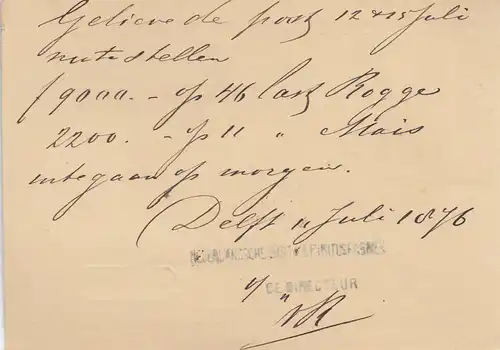 Gelieve de post 12 & 15 Juli
uit te stellen
f 9000.- op 46 last Rogge
2200. - op 11 " Mais
uitegaan op morgen.
Delft 11 Juli 1876
NEDERLANDSCHE GIST & SPIRITUSFABRIEK
DE DIRECTEUR